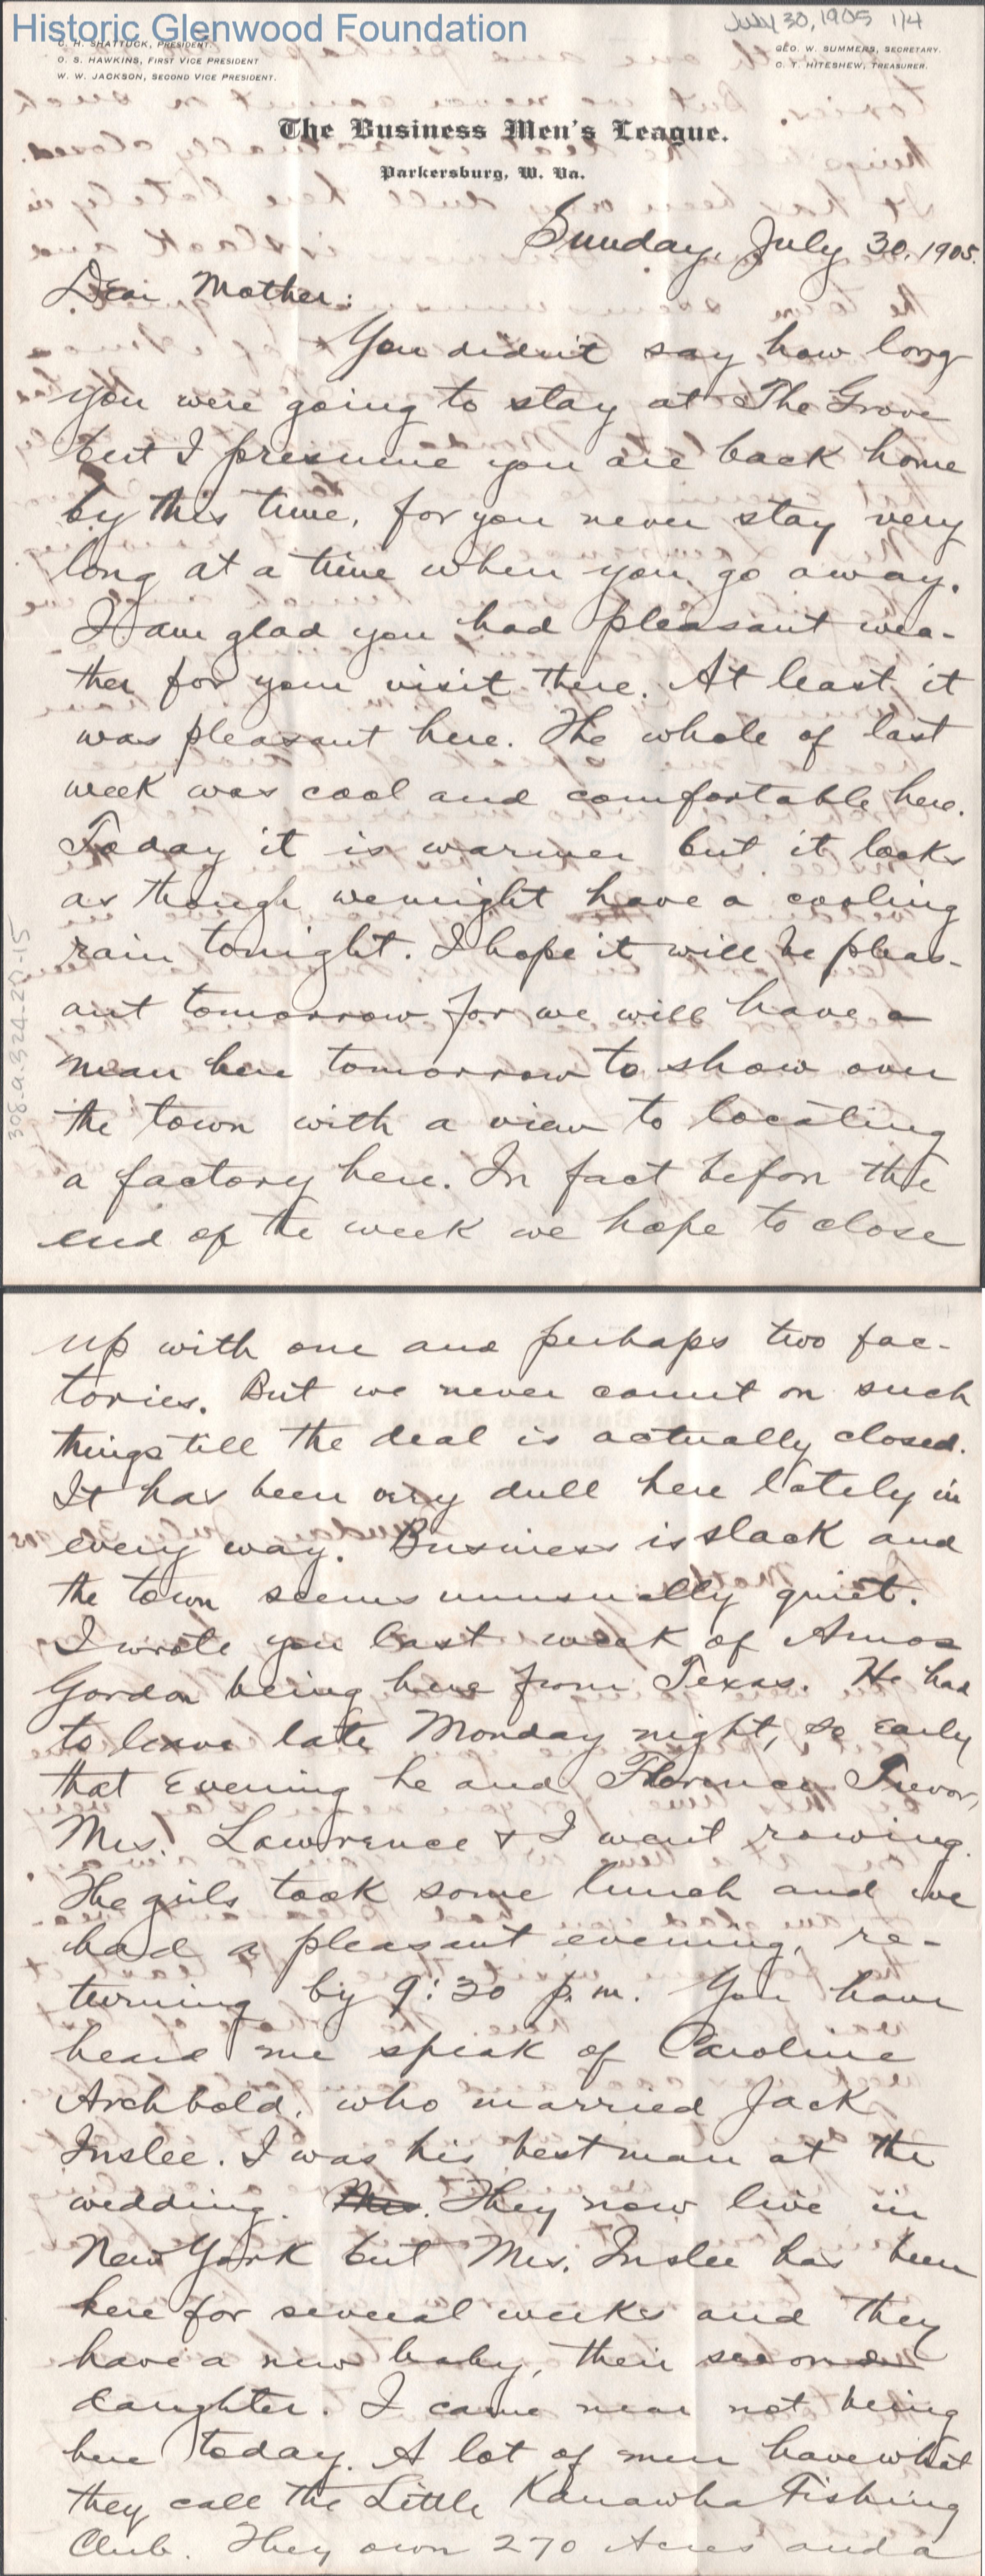 Historic Glenwood Foundation
July 30, 1905 1/4
C. H. SHATTUCK, PRESIDENT.
O. S. HAWKINS, FIRST VICE PRESIDENT
W. W. JACKSON, SECOND VICE PRESIDENT.
GEO. W. SUMMERS, SECRETARY.
C. T. HITESHEW, TREASURER.
The Business Men's League.
Parkersburg, W. Va.
Sunday, July 30, 1905.
Dear Mother:
You didn't say how long
you were going to stay at The Grove
but I presume you are back home
by this time, for you never stay very
long at a time when you go away.
I am glad you had pleasant wea-
ther for your visit there. At least it
was pleasant here. The whole of last
week was cool and comfortable here.
Today it is warmer but it looks
as though we might have a cooling
rain tonight. I hope it will be pleas-
ant tomorrow for we will have a
man here tomorrow to show over
the town with a view to locating
a factory here. In fact before the
end of the week we hope to close
308.a.924-20-15
up with one and perhaps two fac-
tories. But we never count on such
things till the deal is actually closed.
It has been very dull here lately in
every way. Business is slack and
the town seems unusually quiet.
I wrote you last week of Amos
Gordon being here from Texas. He had
to leave late Monday night, so early
that Evening he and Florence Trevor,
Mrs. Lawrence & I went rowing.
The girls took some lunch and we
had a pleasant evening, re-
turning by 9:30 p.m. You have
heard me speak of Caroline
Archbold, who married Jack
Inslee. I was his best man at the
wedding. Mrs. They now live in
New York but Mrs. Inslee has been
here for several weeks and they
have a new baby, their second
daughter. I came near not being
here today. A lot of men have what
they call the Little Kanawha Fishing
Club. They own 270 Acres and a